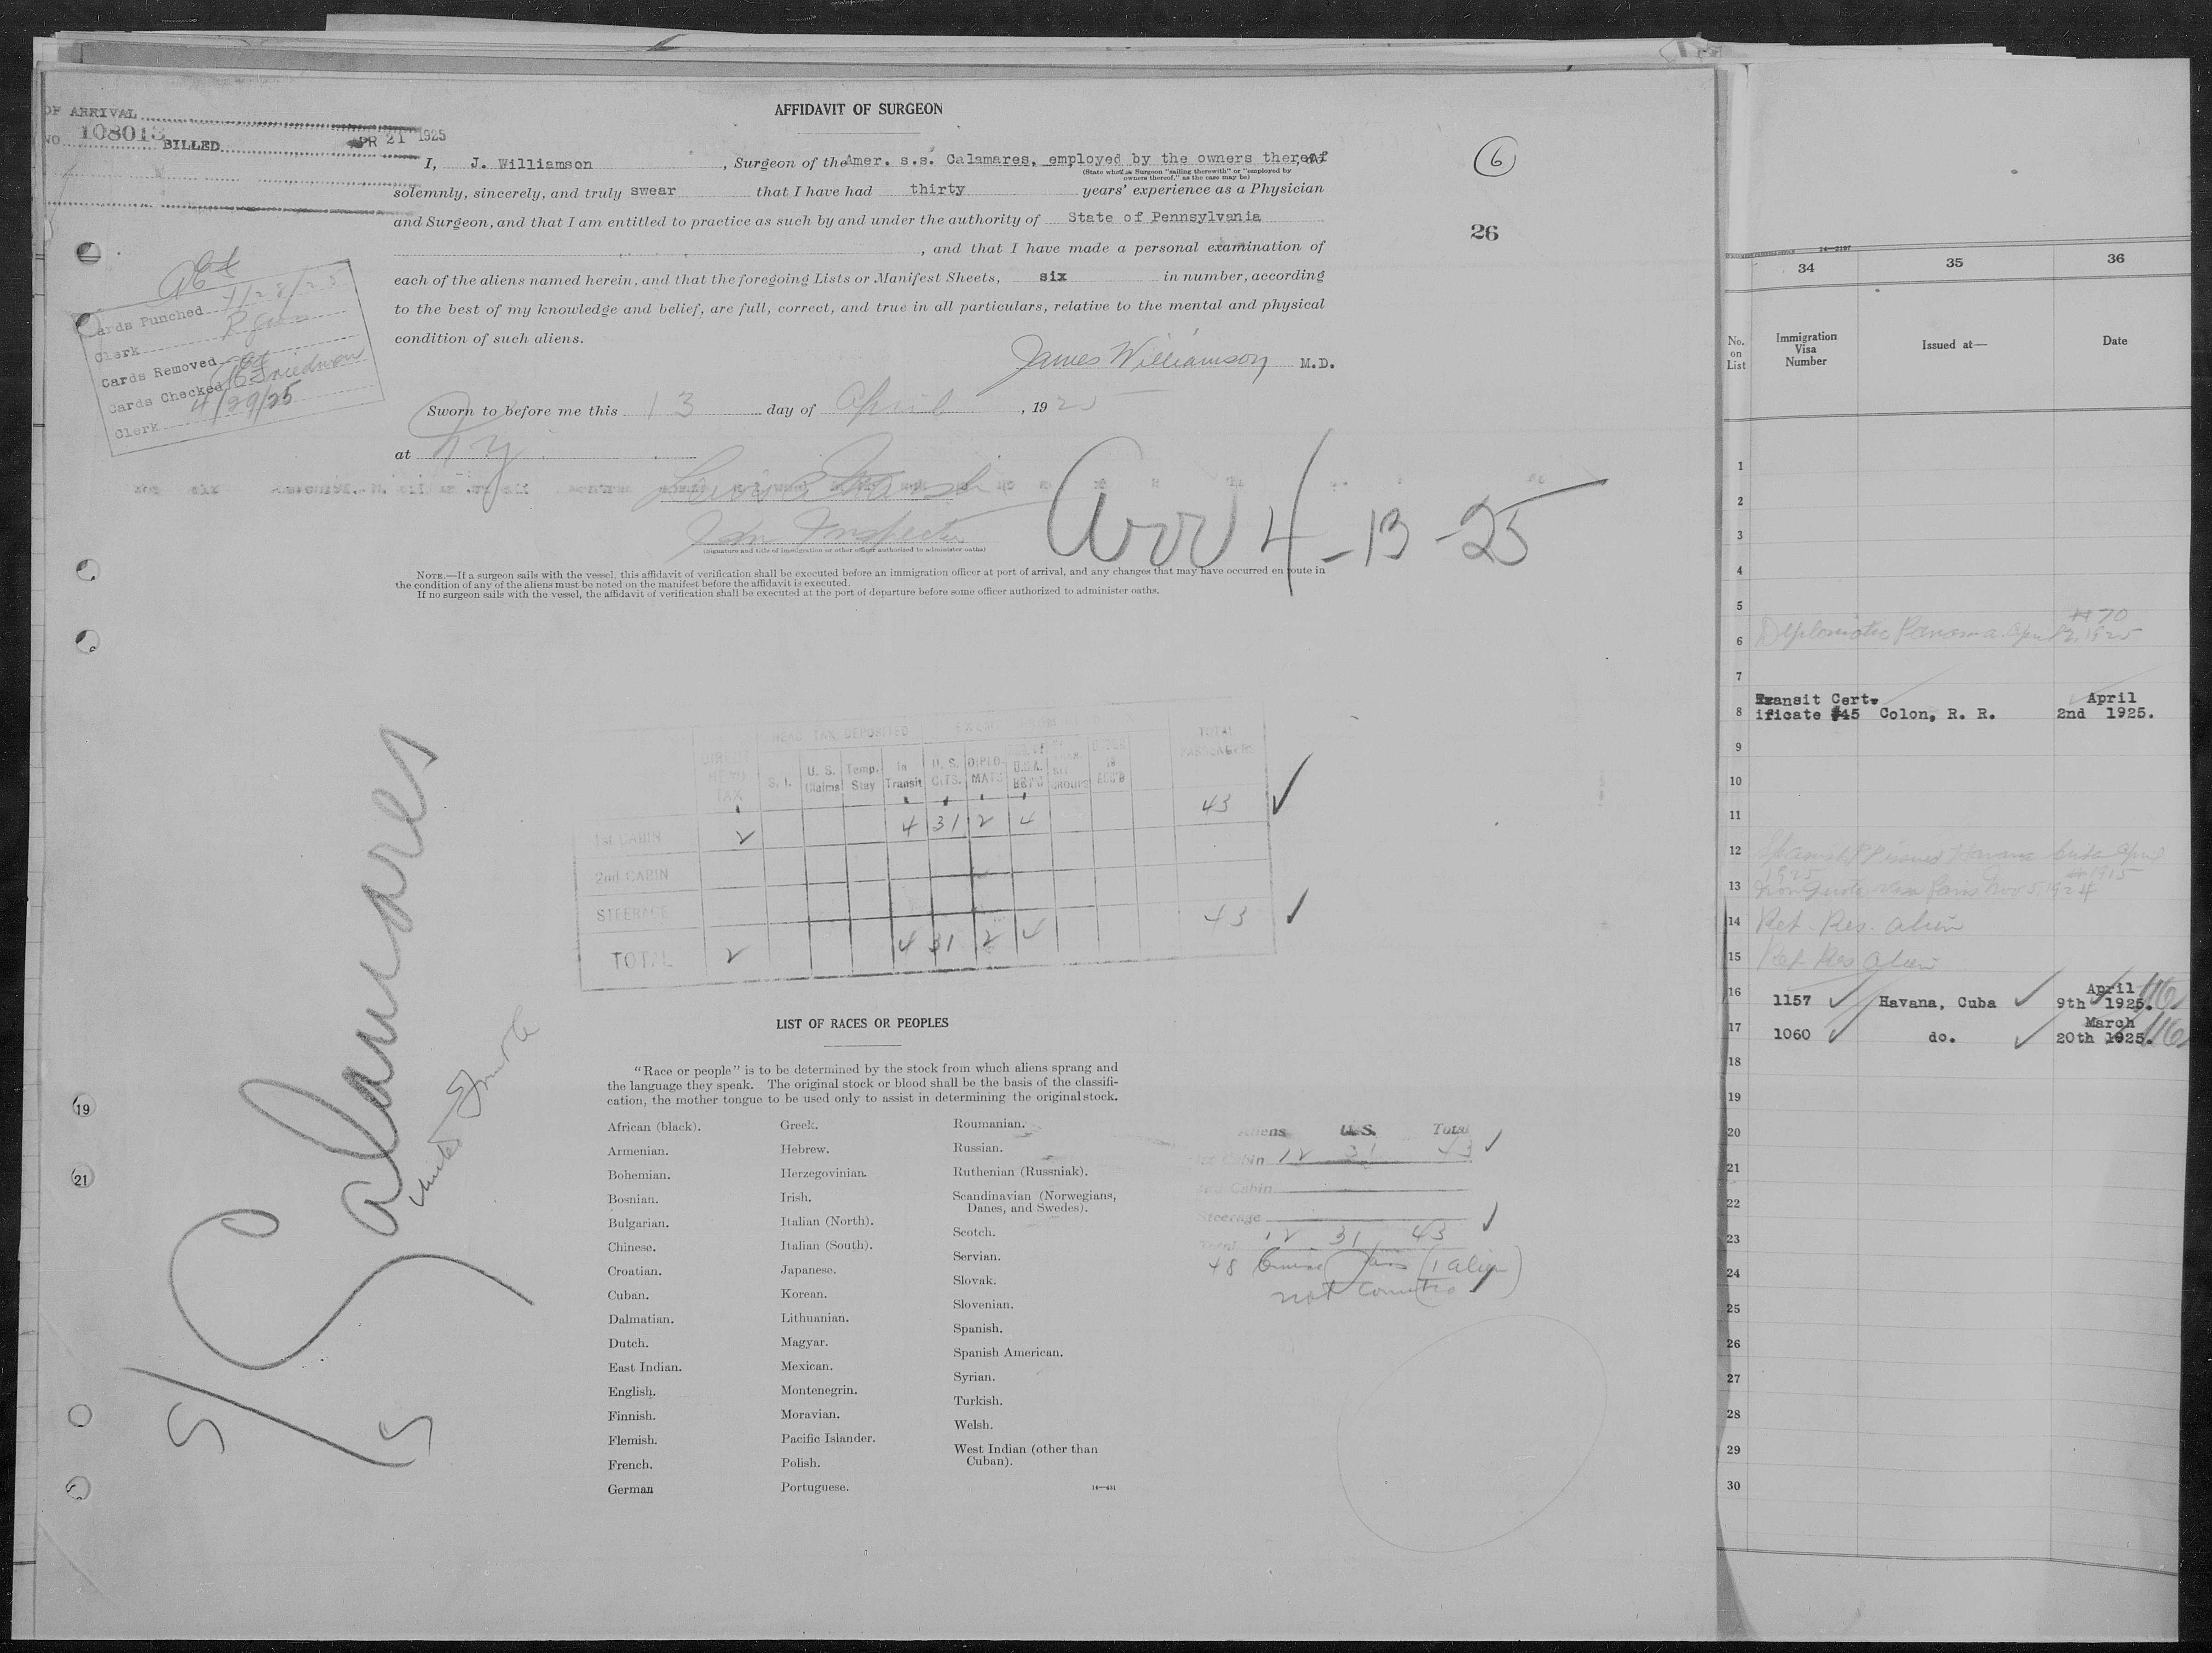 AFFIDAVIT OF SURGEON
OF ARRIVAL
NO. 108013 BILLED APR 21 1925
I, J. Williamson, Surgeon of the Amer. s.s. Calamares, employed by the owners thereof
(State whether Surgeon "sailing therewith" or "employed by
owners thereof," as the case may be)
solemnly, sincerely, and truly swear that I have had thirty years' experience as a Physician
and Surgeon, and that I am entitled to practice as such by and under the authority of State of Pennsylvania
, and that I have made a personal examination of
each of the aliens named herein, and that the foregoing Lists or Manifest Sheets, six in number, according
to the best of my knowledge and belief, are full, correct, and true in all particulars, relative to the mental and physical
condition of such aliens.
James Williamson M.D.
Sworn to before me this 13 day of April, 1925
at N Y
Imm Inspector
(Signature and title of immigration or other officer authorized to administer oaths)
Arr 4-13-25
NOTE.—If a surgeon sails with the vessel, this affidavit of verification shall be executed before an immigration officer at port of arrival, and any changes that may have occurred en route in
the condition of any of the aliens must be noted on the manifest before the affidavit is executed.
If no surgeon sails with the vessel, the affidavit of verification shall be executed at the port of departure before some officer authorized to administer oaths.
6
26
Cards Punched 4/28/25
Clerk
Cards Removed
Cards Checked
4/29/25
Clerk
S/S Calamares
United Fruit Co
DIRECT HEAD TAX
HEAD TAX DEPOSITED
EXEMPT FROM
TOTAL PASSENGERS
S. I.
U. S. Claims
Temp. Stay
In Transit
U. S. CITS.
DIPLO-MATS
1st CABIN 2 4 31 2 4 43
2nd CABIN
STEERAGE 43
TOTAL 2 4 31 2 4
LIST OF RACES OR PEOPLES
"Race or people" is to be determined by the stock from which aliens sprang and
the language they speak. The original stock or blood shall be the basis of the classifi-
cation, the mother tongue to be used only to assist in determining the original stock.
African (black).
Armenian.
Bohemian.
Bosnian.
Bulgarian.
Chinese.
Croatian.
Cuban.
Dalmatian.
Dutch.
East Indian.
English.
Finnish.
Flemish.
French.
German
Greek.
Hebrew.
Herzegovinian.
Irish.
Italian (North).
Italian (South).
Japanese.
Korean.
Lithuanian.
Magyar.
Mexican.
Montenegrin.
Moravian.
Pacific Islander.
Polish.
Portuguese.
Roumanian.
Russian.
Ruthenian (Russniak).
Scandinavian (Norwegians,
Danes, and Swedes).
Scotch.
Servian.
Slovak.
Slovenian.
Spanish.
Spanish American.
Syrian.
Turkish.
Welsh.
West Indian (other than
Cuban).
14—431
Aliens U.S. Total
1st Cabin 12 31 43
2nd Cabin
Steerage
Total 12 31 43
48 Cruise Pass (1 alien)
not counted
19
21
14—2197
34 35 36
No. on List
Immigration Visa Number
Issued at—
Date
1
2
3
4
5
#70
6 Diplomatic Panama April 2, 1925
7
Transit Cert- April
8 ificate #45 Colon, R. R. 2nd 1925.
9
10
11
12 Spanish PP issued Havana Cuba April
1925 #1915
13 Non Quota Visa Paris Nov 5, 1924
14 Ret. Res. Alien
15 Ret Res Alien
16 1157 Havana, Cuba April 9th 1925.
17 1060 do. March 20th 1925.
18
19
20
21
22
23
24
25
26
27
28
29
30